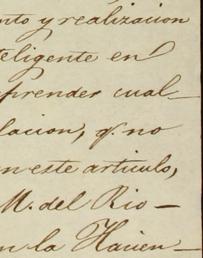 nto y realizacion
teligente en
prender cual-
lacion, q. no
en este articulo,
M. del Rio-
en la Hacien-